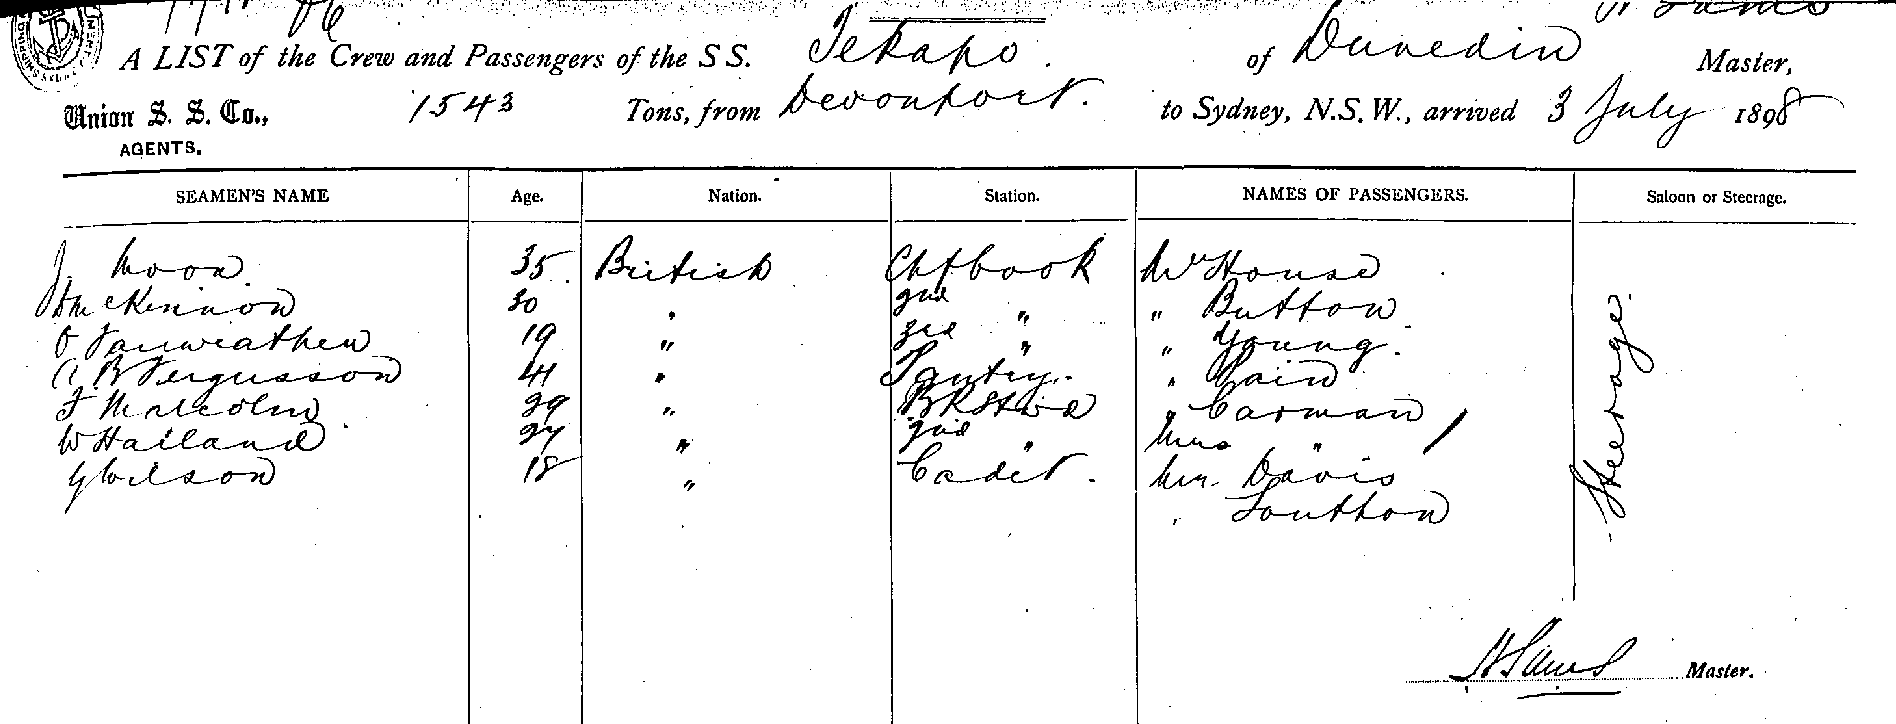 A LIST of the Crew and Passengers of the S S. Tekapo. of Dunedin Master,
Union S. S. Co., 1543 Tons, from Devonport. to Sydney, N.S.W., arrived 3 July 1898
AGENTS.
SEAMEN'S NAME Age. Nation. Station. NAMES OF PASSENGERS. Saloon or Steerage.
J. Moon. 35. British Chf book Mr House
McKinnon 30 " 2nd " " Button
Fairweather 19 " 3rd " " Young.
B Fergusson 41 " Pantry. " Cain
F Malcolm 29 " Bk Stwd " Carman
W Hailand 27 " 2nd " Mrs "
G Wilson 18 " Cadet. Mr. Davis
" Southon
Steerage.
Master.